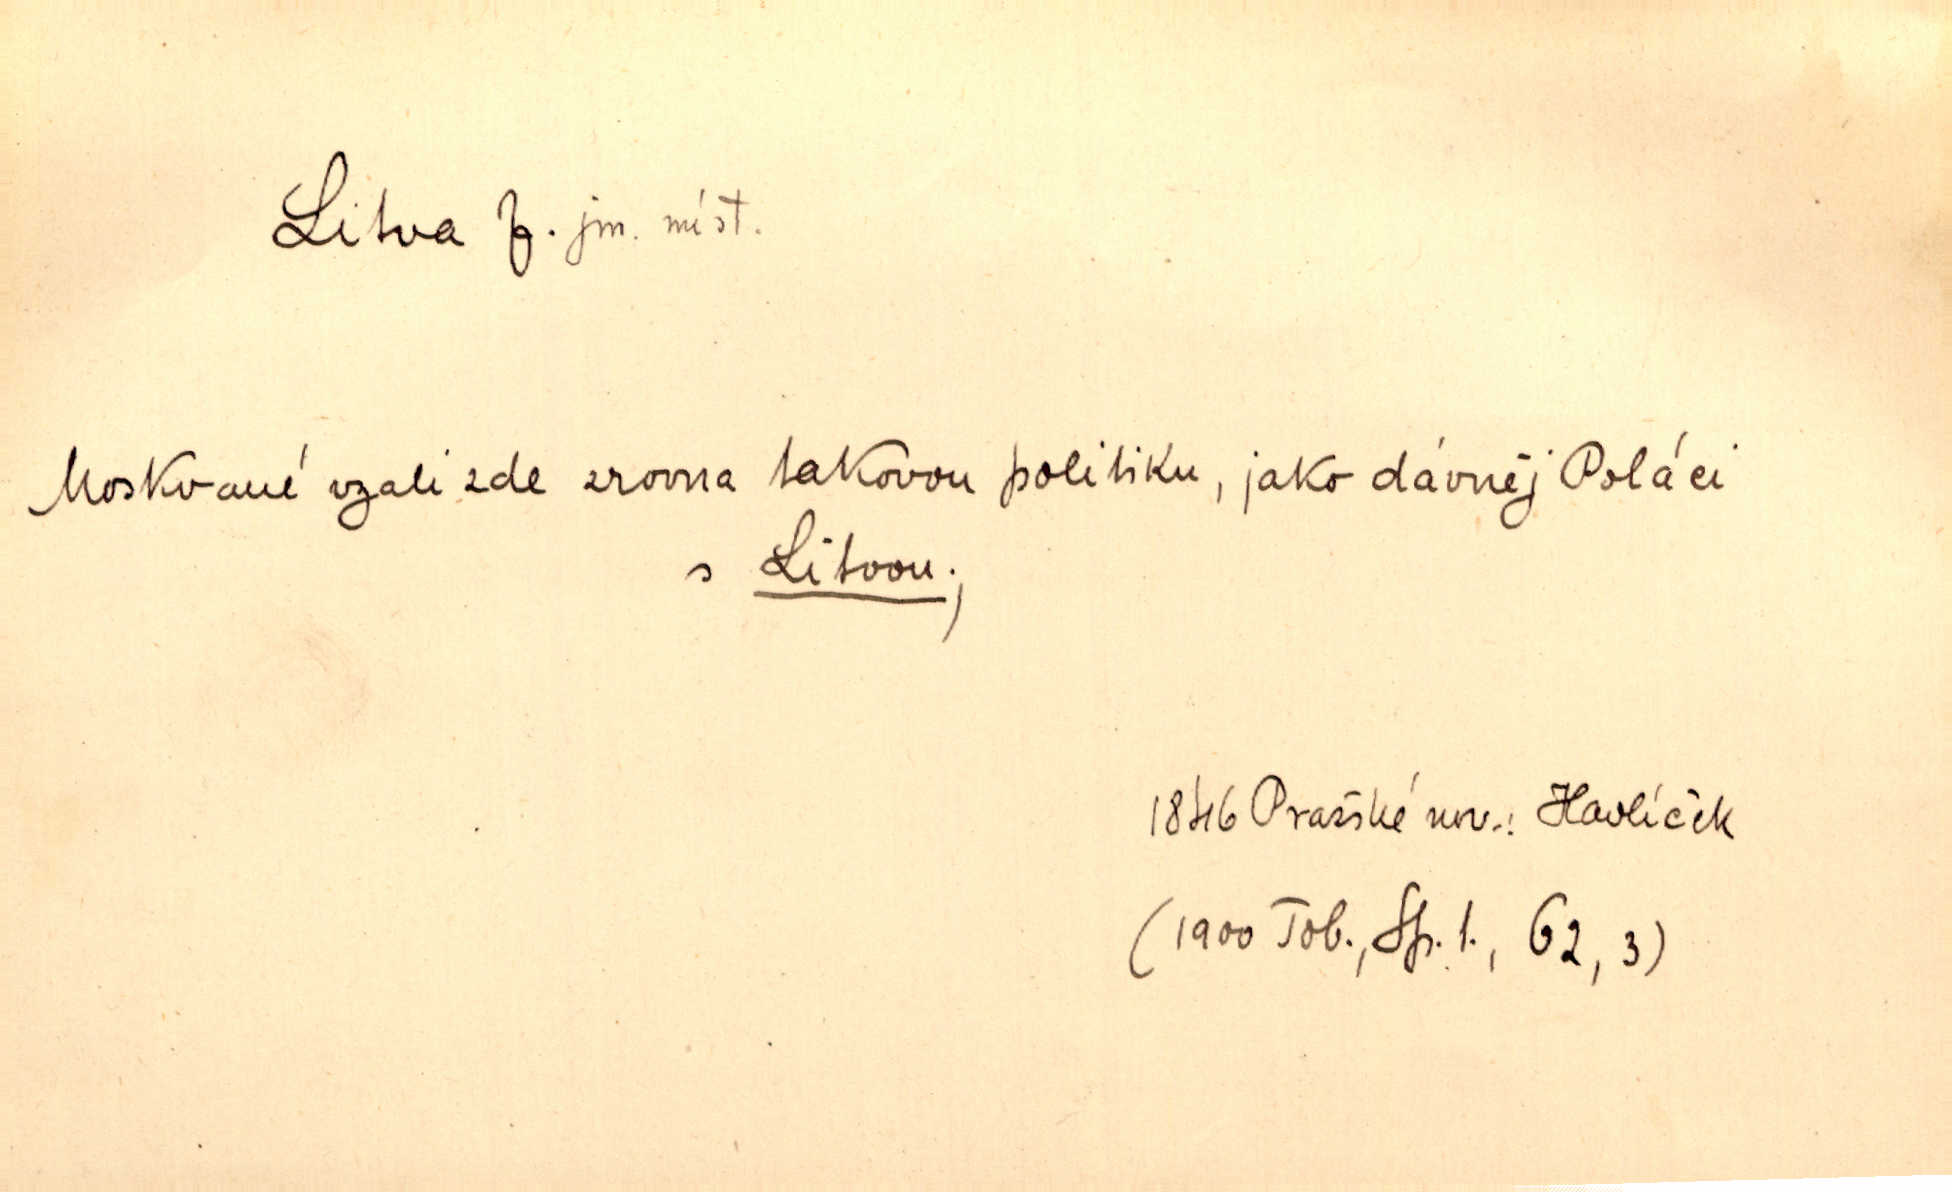 Litva f. jm. míst.
Moskvané vzali zde zrovna takovou politiku, jako dávněj Poláci
s Litvou;
1846 Pražské nov.: Havlíček
(1900 Tob., Sp. 1., 62, 3)